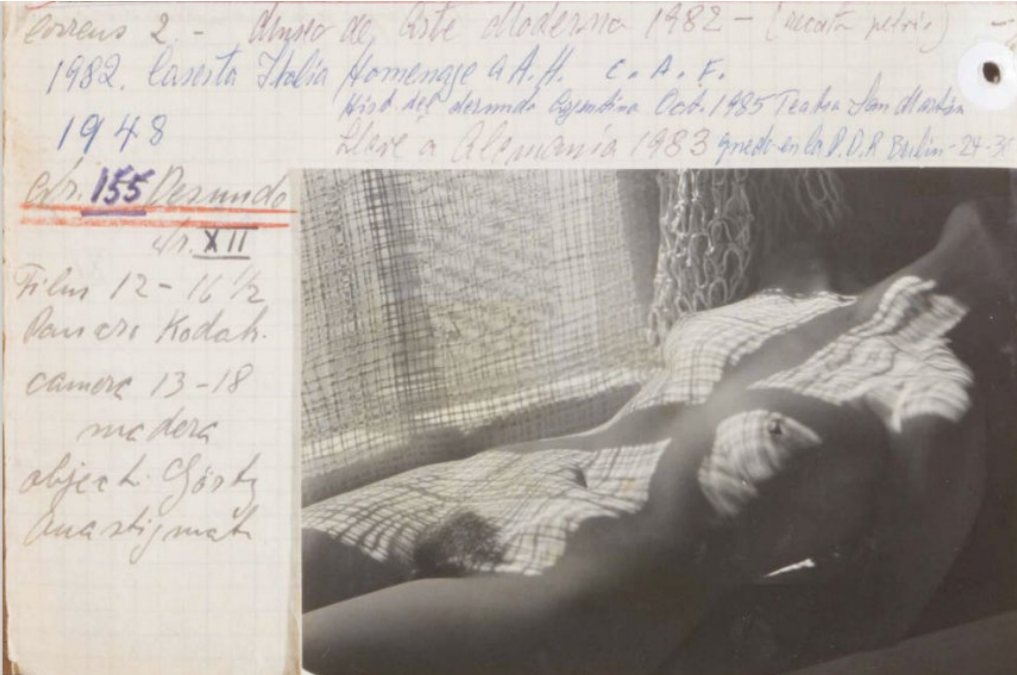 correus 2. - Museo de Arte Moderno 1982 -
1982. Caserta Italia Homenage a A.H. C.A.F.
Hist. del desnudo Argentina Oct. 1985 Teatro San Martin
1948
Llevé a Alemania 1983 quedo en la Berlin - 24-30
Nr. 155 Desnudo
Nr. XII
Film 12 - 16 1/2
Pancro Kodak.
camera 13-18
madera
object. Görtz
Anastigmat